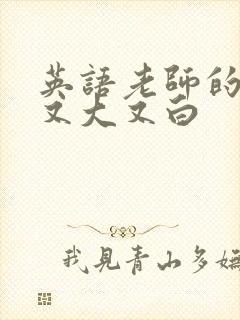 英語老師的
又大又白
我見青山多嫵